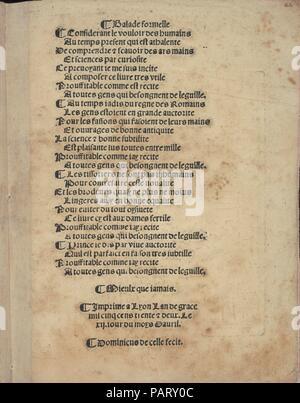 ¶ Balade formelle
¶ Considerant le vouloir des humains
Au temps present qui est
De comprendre & scauoir des ars mains
Et sciences par curiosite
Ce preuoyant ie me suis incite
A composer ce liure tres vtile
Prouffitable comme est recite
A toutes gens qui besongnent de leguille.
¶ Au temps iadis du regne des Romains
Les gens estoient en grande auctorite
Pour les fassons qui faisoient de leurs mains
Et ouurages de bonne antiquite
La science & bonne subtilite
Est plaisante sus toutes entre mille
Prouffitable comme iay recite
A toutes gens qui besongnent de leguille.
¶ Les tissotiers ne sont pas inhumains
Pour conquerre ceste noualite
Et les brodeurs quasi ne plus ne moins
Lingeres aux en bonne equalite
Pour euiter du tout oysuete
Ce liure cy est aux dames fertile
Prouffitable comme iay recite
A toutes gens qui besongnent de leguille.
¶ Prince ie dis par viue auctorite
Quil est parfaict en facon tres subtille
Prouffitable comme iay recite
A toutes gens qui besongnent de leguille.
¶ Mieulx que iamais.
¶ Imprime a Lyon Lan de grace
mil cinq cens trente & deux. Le
xij. iour du moys Dauril.
¶ Dominicus de celle fecit.
alamy
PARY0C